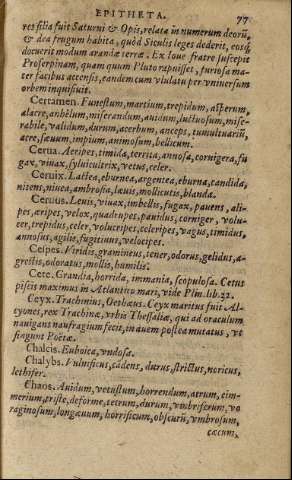 EPITHETA. 77
res filia fuit Saturni & Opis, relata in numerum deorũ,
& dea frugum habita, quòd Siculis leges dederit, eosq́;
docuerit modum arandæ terræ. Ex Ioue fratre suscepit
Proserpinam, quam quum Pluto rapuisset, furiosa ma-
ter facibus accensis, eandem cum vlulatu per vniuersum
orbem inquisiuit.
Certamen. Funestum, martium, trepidum, asperum,
alacre, anhelum, miserandum, auidum, luctuosum, mise-
rabile, validum, durum, acerbum, anceps, tumultuariũ,
acre, sæuum, impium, animosum, bellicum.
Cerua. Aeripes, timida, territa, annosa, cornigera, fu
gax, viuax, syluicultrix, vetus, celer.
Ceruix. Lactea, eburnea, argentea, eburna, candida,
nitens, niuea, ambrosia, læuis, mollicutis, blanda.
Ceruus. Leuis, viuax, imbellis, fugax, pauens, ali-
pes, æripes, velox, quadrupes, pauidus, corniger, volu-
cer, trepidus, celer, volucripes, celeripes, vagus, timidus,
annosus, agilis, fugitiuus, velocipes.
Cespes. Viridis, gramineus, tener, odorus, gelidus, a-
grestis, odoratus, mollis, humilis.
Cete. Grandia, horrida, immania, scopulosa. Cetus
piscis maximus in Atlantico mari, vide Plin. lib. 32.
Ceyx. Trachinius, Oetæus. Ceyx maritus fuit Al-
cyones, rex Trachinæ, vrbis Thessaliæ, qui ad oraculum
nauigans naufragium fecit, in auem postea mutatus, vt
fingunt Poëtæ.
Chalcis. Euboica, vndosa.
Chalybs. Vulnificus, cadens, durus, strictus, noricus,
lethifer.
Chaos. Auidum, vetustum, horrendum, atrum, cim-
merium, triste, deforme, tetrum, durum, vmbriferum, vo
raginosum, longæuum, horrificum, obscurũ, vmbrosum,
cæcum,